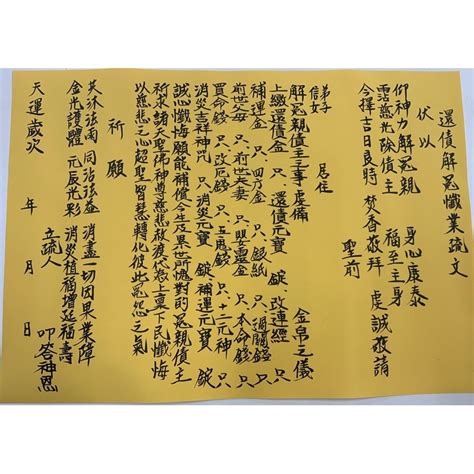 還債解冤懺業疏文
伏以
仰神力解冤親　身心康泰
霑慈光除債主　福至主身
今擇吉日良時　焚香敬拜　虔誠敬請
聖前
弟子
信女　居住
解冤親債主事虔備　金帛之儀
上繳還債金　只　還債元寶　錠　改連經　只
補運金　只　四方金　只　銀紙　只　過關錢　只
前世父母　只　前世夫妻　只　嬰靈金　只　本命錢　只
買命錢　只　改厄錢　只　五鬼錢　只　十二元神　只
消災吉祥神咒　只　消災元寶　錠　補運元寶　錠
誠心懺悔願能補償今生及累世所虧對的冤親債主
祈求諸天聖佛神尊慈悲赦渡代為上稟下民懺悔
以慈悲之心超聖智慧轉化彼此冤怨之氣
祈願
共沐法雨　同沾法益　消盡一切因果業障
金光護體　元辰光彩　消災植福增延福壽
立疏人　叩答神恩
天運歲次　年　月　日